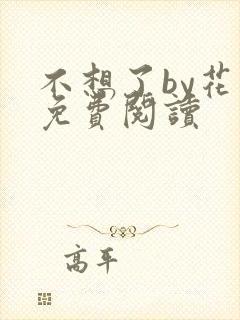 不想了by花
免費閱讀
高平